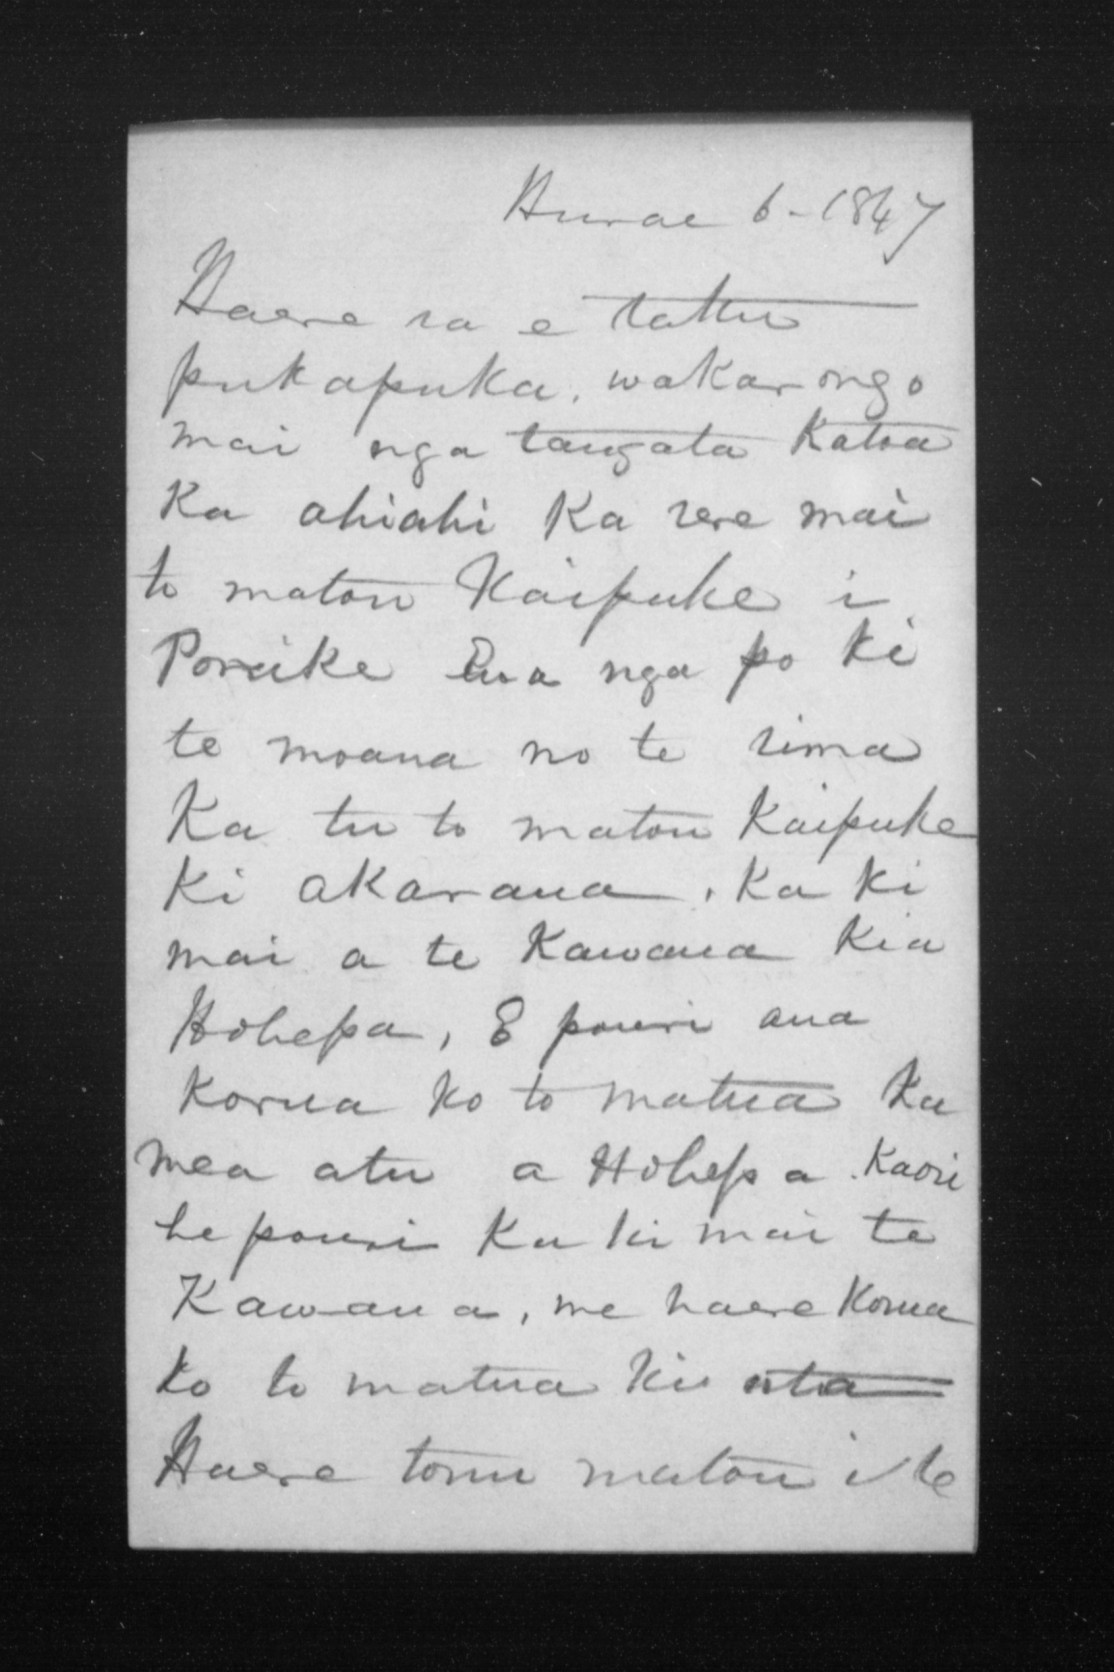 Hurae 6-1847
Haere ra e taku
pukapuka, wakarongo
mai nga tangata katoa
Ka ahiahi ka rere mai
to matou Kaipuke i
Poreike Erua nga po ki
te moana no te rima
Ka tu to matou Kaipuke
Ki akarana, ka ki
mai a te Kawana kia
Hohepa, E pouri ana
korua ko to matua Ka
mea atu a Hohepa. Kaore
he pouri Ka ki mai te
Kawana, me haere korua
ko to matua ki uta
Haere tonu matou i te